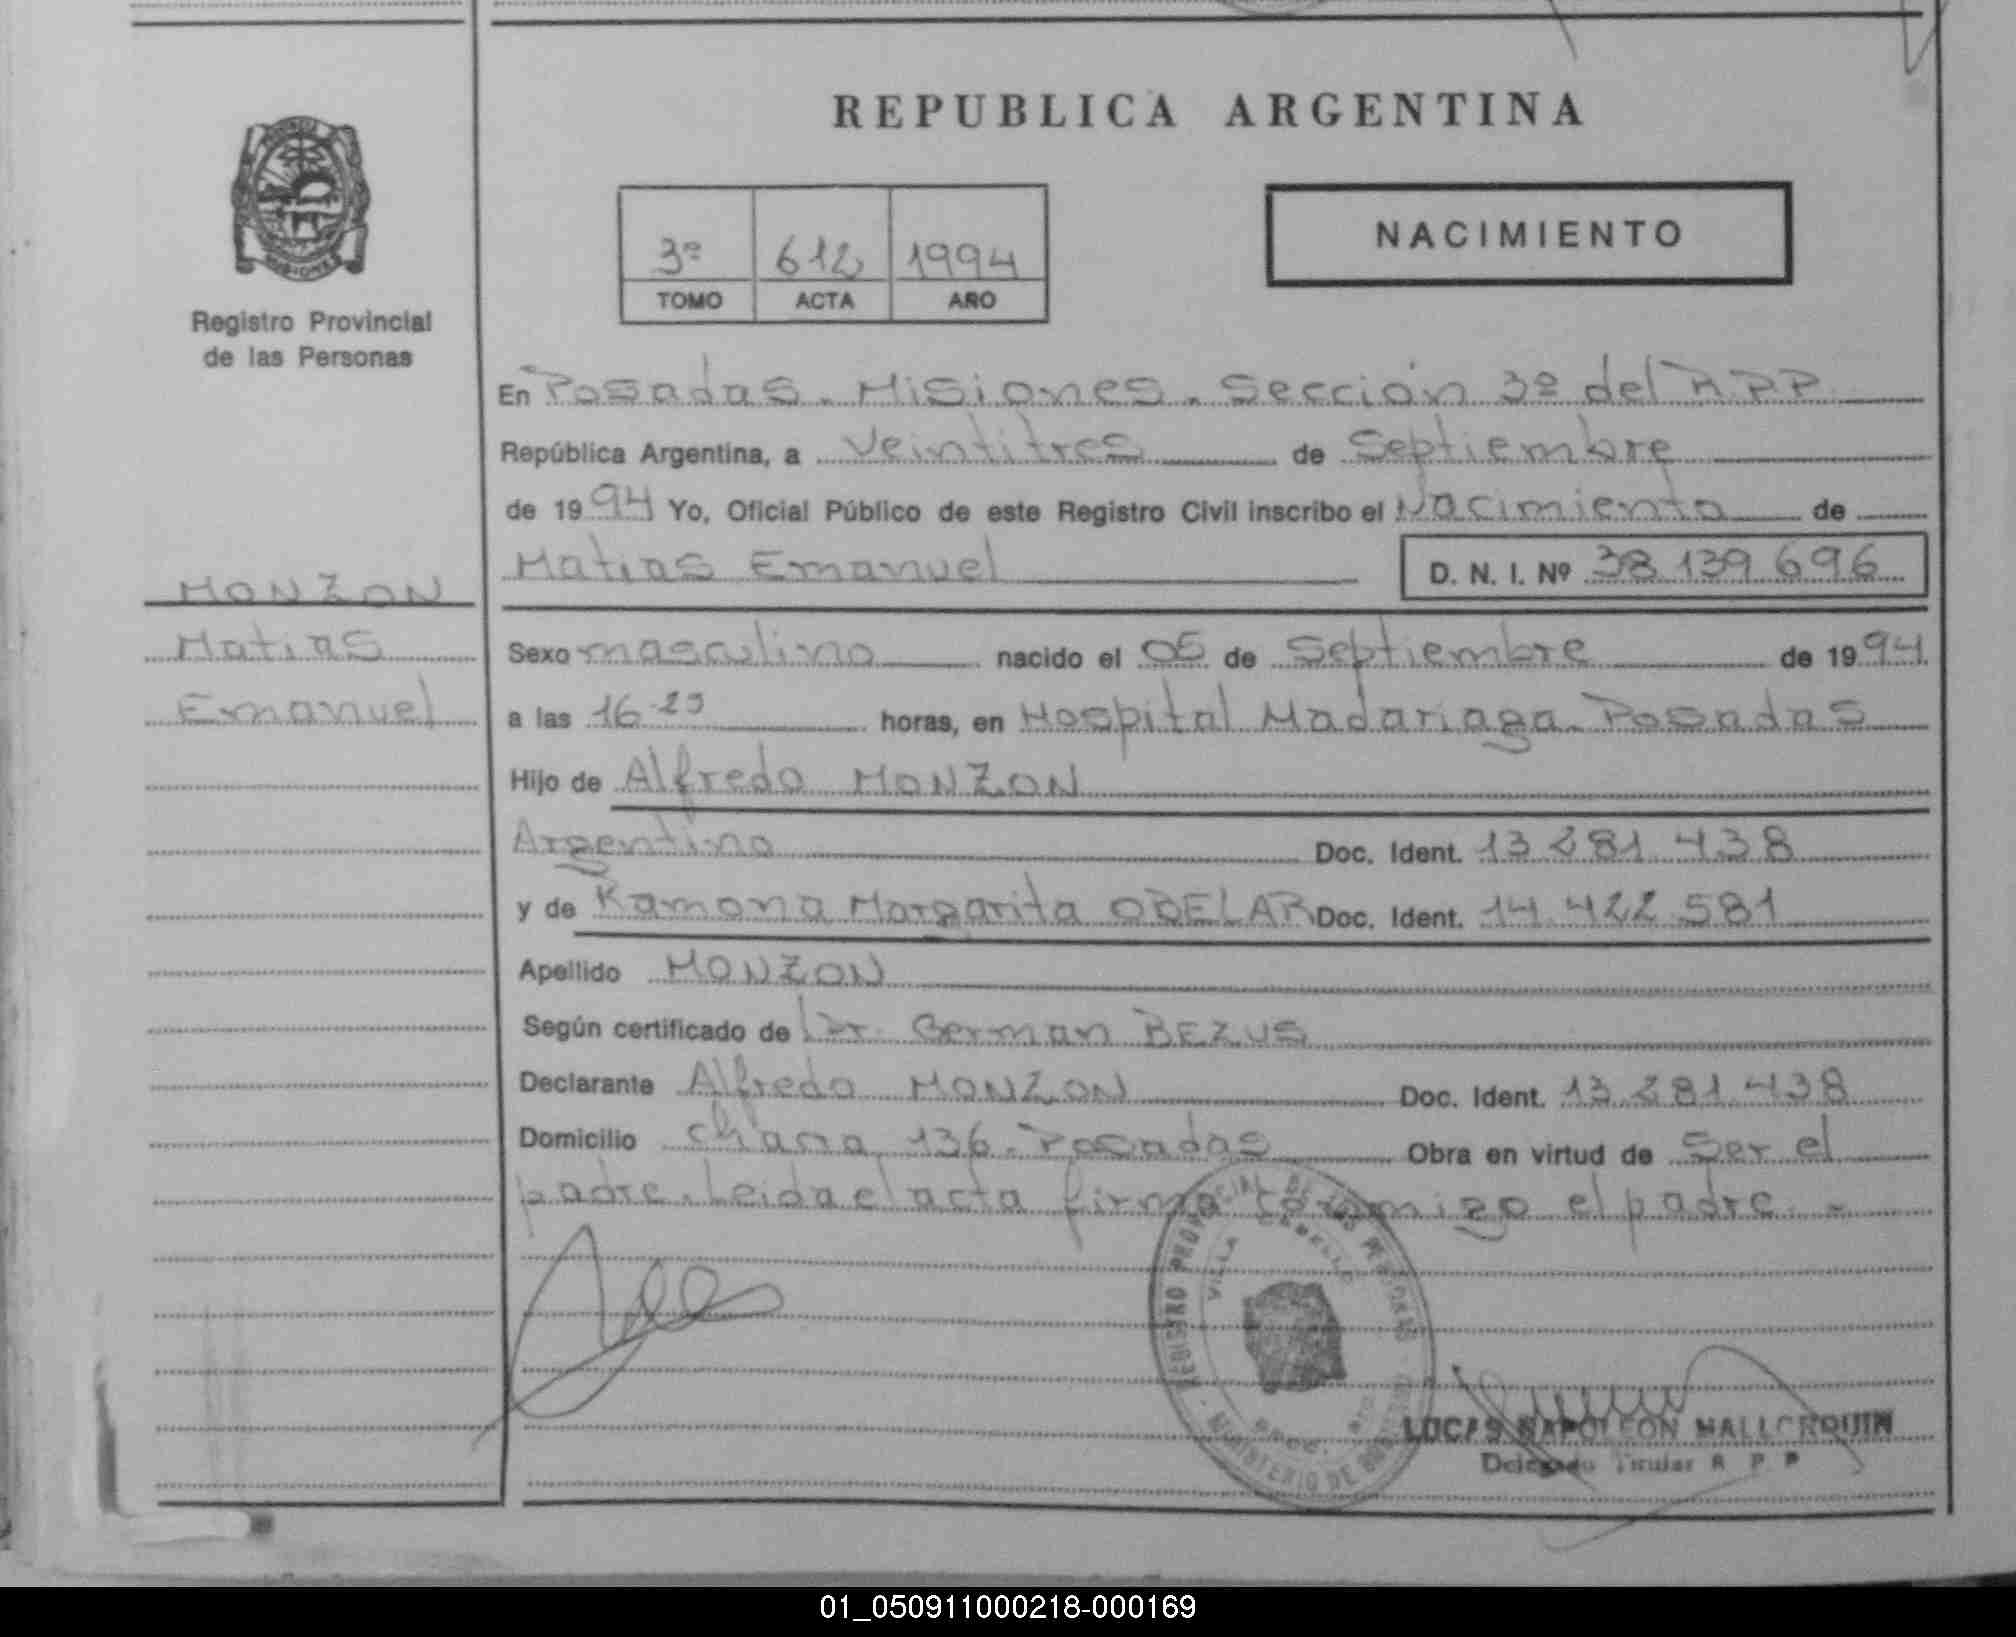 REPUBLICA ARGENTINA
NACIMIENTO
3º 612 1994
TOMO ACTA AÑO
Registro Provincial
de las Personas
En Posadas. Misiones. Sección 3º del R.P.P.
República Argentina, a Veintitres de Septiembre
de 1994 Yo, Oficial Público de este Registro Civil inscribo el Nacimiento de
Matias Emanuel D. N. I. Nº 38 139 696
MONZON
Matias
Emanuel
Sexo masculino nacido el 05 de Septiembre de 1994
a las 16 23 horas, en Hospital Madariaga. Posadas
Hijo de Alfredo MONZON
Argentino Doc. Ident. 13 281 438
y de Ramona Margarita ODELAR Doc. Ident. 14 422 581
Apellido MONZON
Según certificado de Dr. German BEZUS
Declarante Alfredo MONZON Doc. Ident. 13 281 438
Domicilio 136. Posadas Obra en virtud de Ser el
padre. Leida el acta firma conmigo el padre. -
REGISTRO PROVINCIAL DE LAS PERSONAS
VILLA CABELLO
MINISTERIO DE
LUCAS NAPOLEON MALLORQUIN
Delegado Titular R P P
01_050911000218-000169